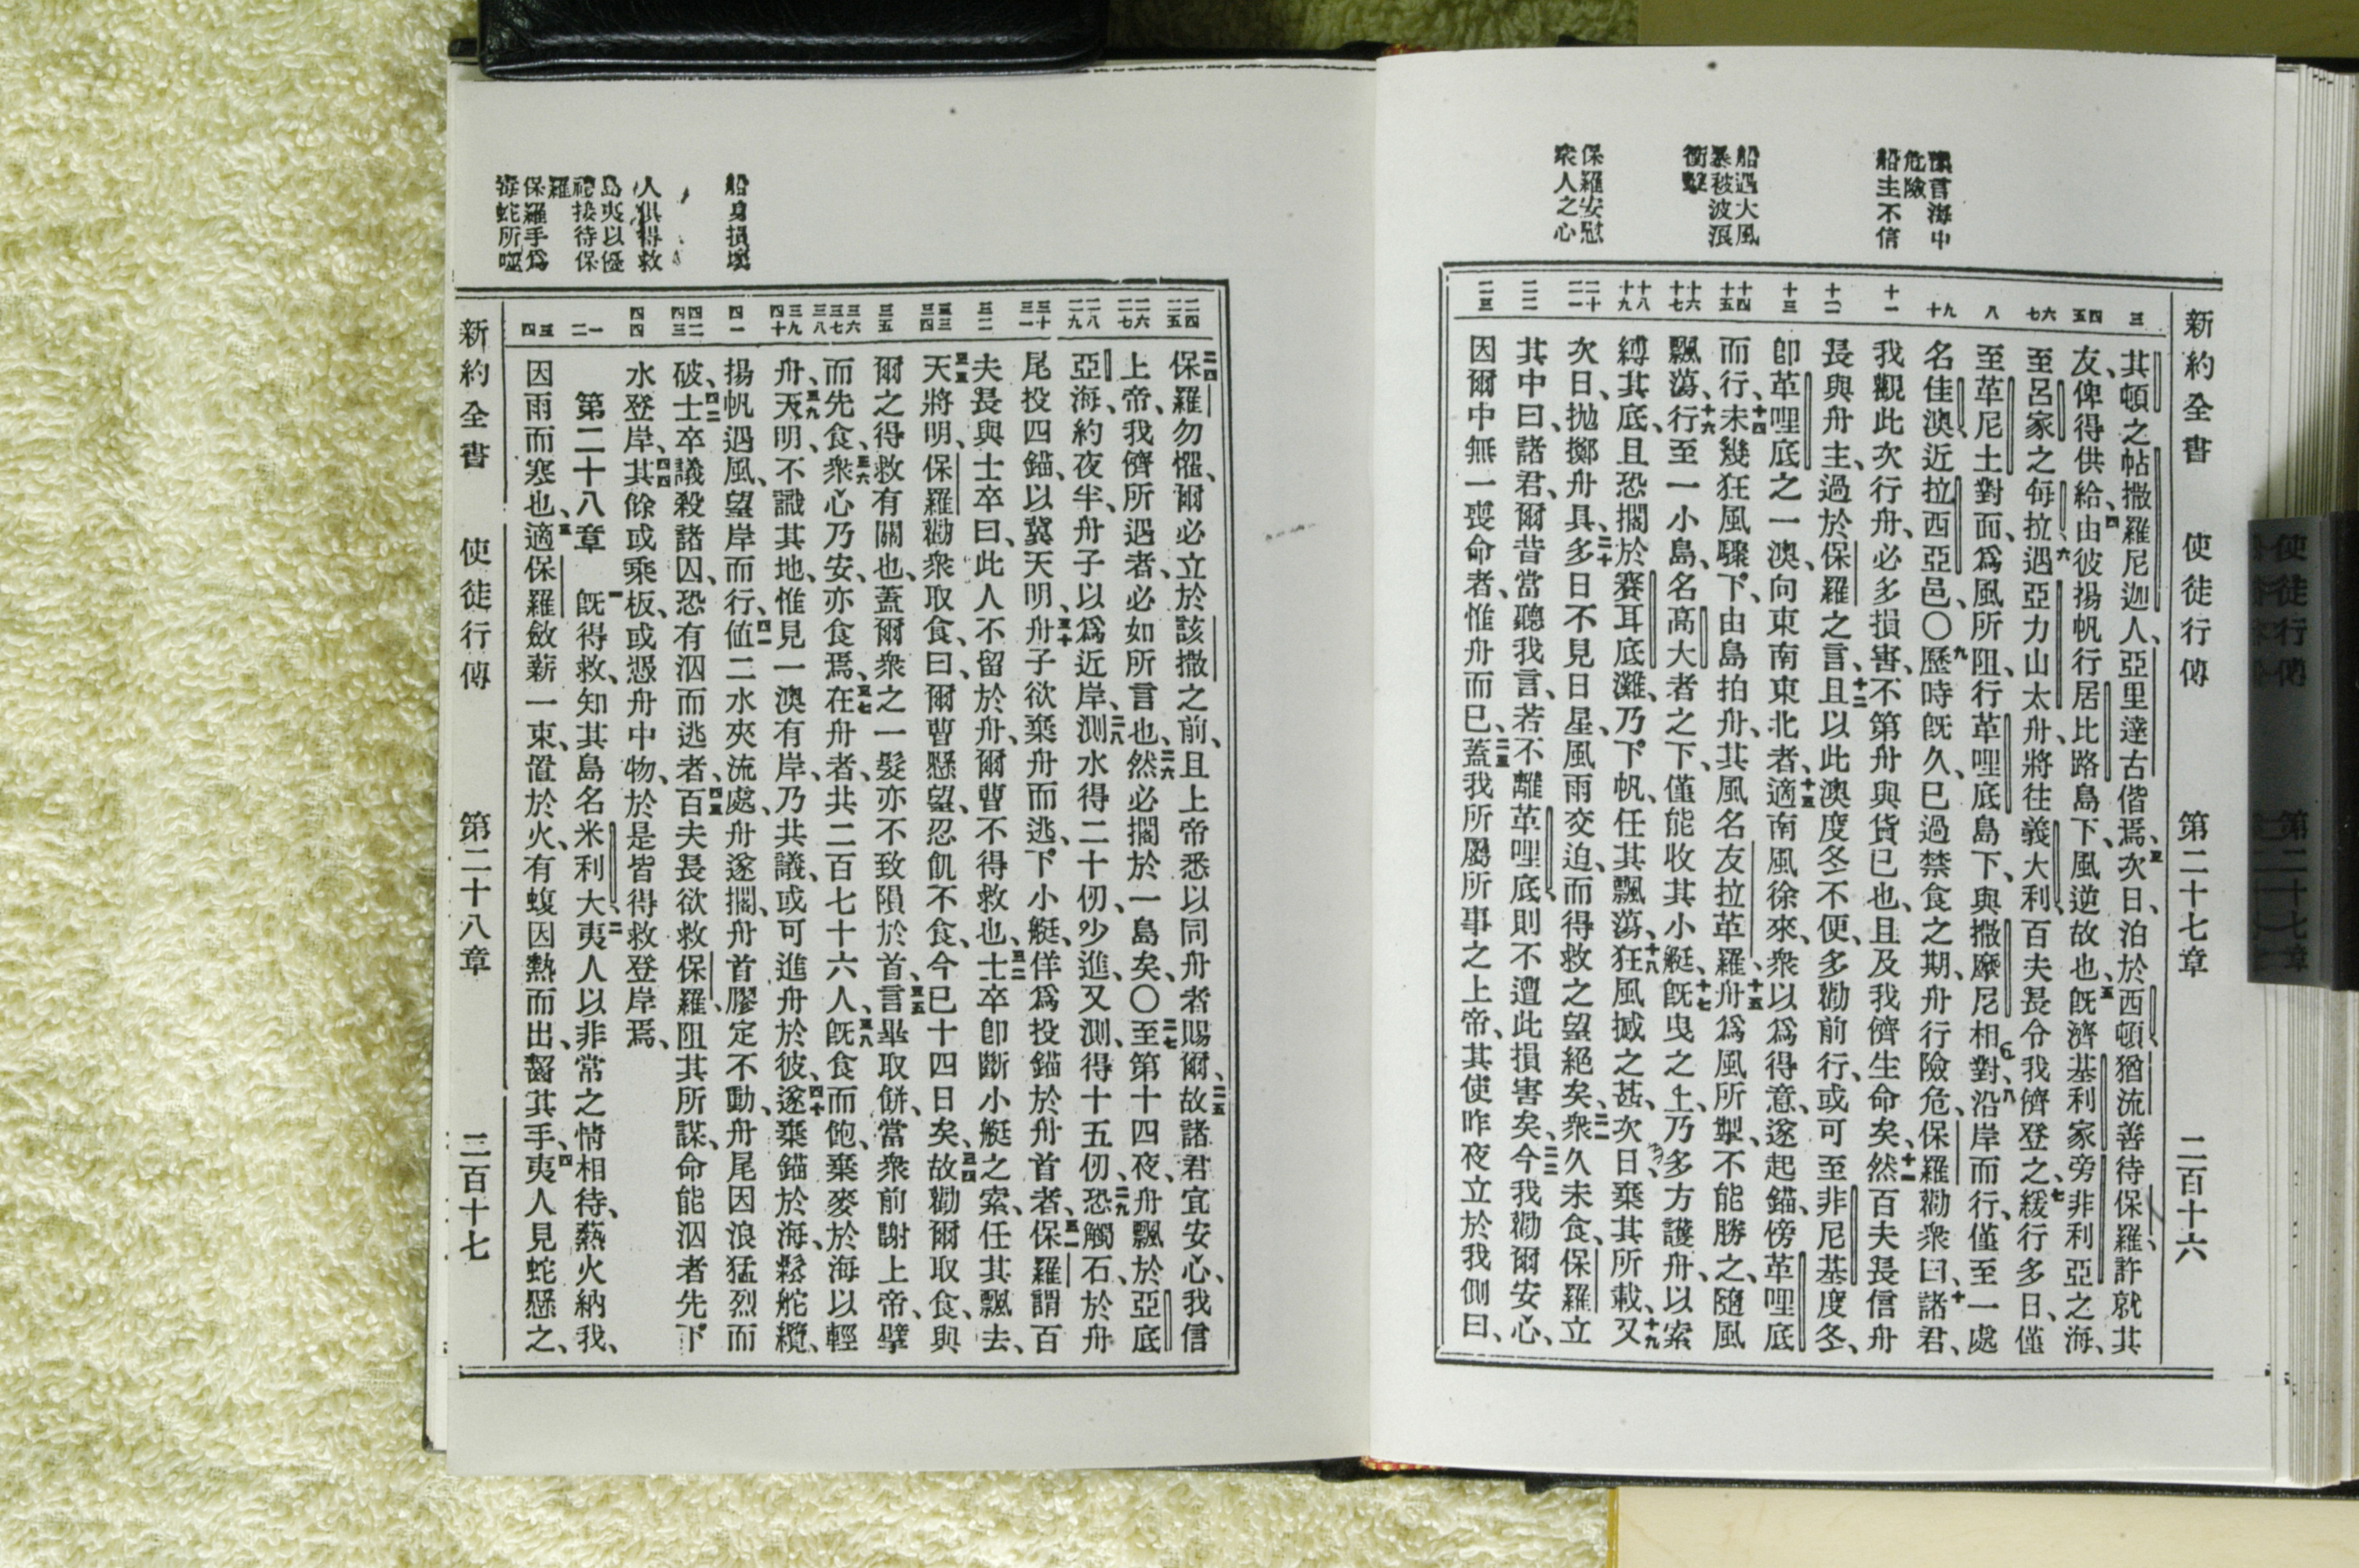 使徒行傳
第二十七章
新約全書 使徒行傳 第二十七章 二百十六
言海中
危險
船主不信
船遇大風
暴被波浪
衝擊
保羅安慰
衆人之心
三
四 五
六 七
八
九 十
十一
十二
十三
十四 十五
十六 十七
十八 十九
二十 二一
二二
二三
其頓之帖撒羅尼迦人、亞里達古偕焉、三次日、泊於西頓、猶流善待保羅、許就其
友、俾得供給、四由彼揚帆行居比路島下、風逆故也、五既濟基利家旁非利亞之海、
至呂家之每拉、六遇亞力山太舟、將往義大利、百夫長令我儕登之、七緩行多日、僅
至革尼土對面、爲風所阻、行革哩底島下、與撒摩尼相對、八沿岸而行、僅至一處
名佳澳、近拉西亞邑、〇九歷時既久、已過禁食之期、舟行險危、保羅勸衆曰、十諸君、
我觀此次行舟、必多損害、不第舟與貨已也、且及我儕生命矣、十一然百夫長信舟
長與舟主、過於保羅之言、十二且以此澳度冬不便、多勸前行、或可至非尼基度冬、
卽革哩底之一澳、向東南東北者、十三適南風徐來、衆以爲得意、遂起錨、傍革哩底
而行、十四未幾狂風驟下、由島拍舟、其風名友拉革羅、十五舟爲風所掣、不能勝之、隨風
飄蕩、十六行至一小島、名高大者之下、僅能收其小艇、十七既曳之上、乃多方護舟、以索
縛其底、且恐擱於賽耳底灘、乃下帆、任其飄蕩、十八狂風撼之甚、次日、棄其所載、十九又
次日、抛擲舟具、二十多日不見日星、風雨交迫、而得救之望絕矣、二一衆久未食、保羅立
其中曰、諸君、爾昔當聽我言、若不離革哩底、則不遭此損害矣、二二今我勸爾安心、
因爾中無一喪命者、惟舟而已、二三蓋我所屬所事之上帝、其使昨夜立於我側曰、
船身損壞
人俱得救
島夷以優
禮接待保
羅
保羅手爲
海蛇所噬
二四 二五
二六 二七
二八 二九
三十 三一
三二
三三 三四
三五
三六 三七 三八
三九 四十
四一
四二 四三
四四
一 二
三 四
二四保羅勿懼、爾必立於該撒之前、且上帝悉以同舟者賜爾、二五故諸君宜安心、我信
上帝、我儕所遇者、必如所言也、二六然必擱於一島矣、〇二七至第十四夜、舟飄於亞底
亞海、約夜半、舟子以爲近岸、二八測水得二十仞、少進、又測、得十五仞、二九恐觸石、於舟
尾投四錨、以冀天明、三十舟子欲棄舟而逃、下小艇、佯爲投錨於舟首者、三一保羅謂百
夫長與士卒曰、此人不留於舟、爾曹不得救也、三二士卒卽斷小艇之索、任其飄去、
三三天將明、保羅勸衆取食、曰、爾曹懸望、忍飢不食、今已十四日矣、三四故勸爾取食、與
爾之得救有關也、蓋爾衆之一髮亦不致隕於首、三五言畢取餅、當衆前謝上帝、擘
而先食、三六衆心乃安、亦食焉、三七在舟者、共二百七十六人、三八既食而飽、棄麥於海以輕
舟、三九天明、不識其地、惟見一澳有岸、乃共議、或可進舟於彼、四十遂棄錨於海、鬆舵纜、
揚帆遇風、望岸而行、四一値二水夾流處、舟遂擱、舟首膠定不動、舟尾因浪猛烈而
破、四二士卒議殺諸囚、恐有泅而逃者、四三百夫長欲救保羅、阻其所謀、命能泅者先下
水登岸、四四其餘或乘板、或憑舟中物、於是皆得救登岸焉、
第二十八章 一既得救、知其島名米利大、二夷人以非常之情相待、爇火納我、
因雨而寒也、三適保羅斂薪一束、置於火、有蝮因熱而出、齧其手、四夷人見蛇懸之、
新約全書 使徒行傳 第二十八章 二百十七